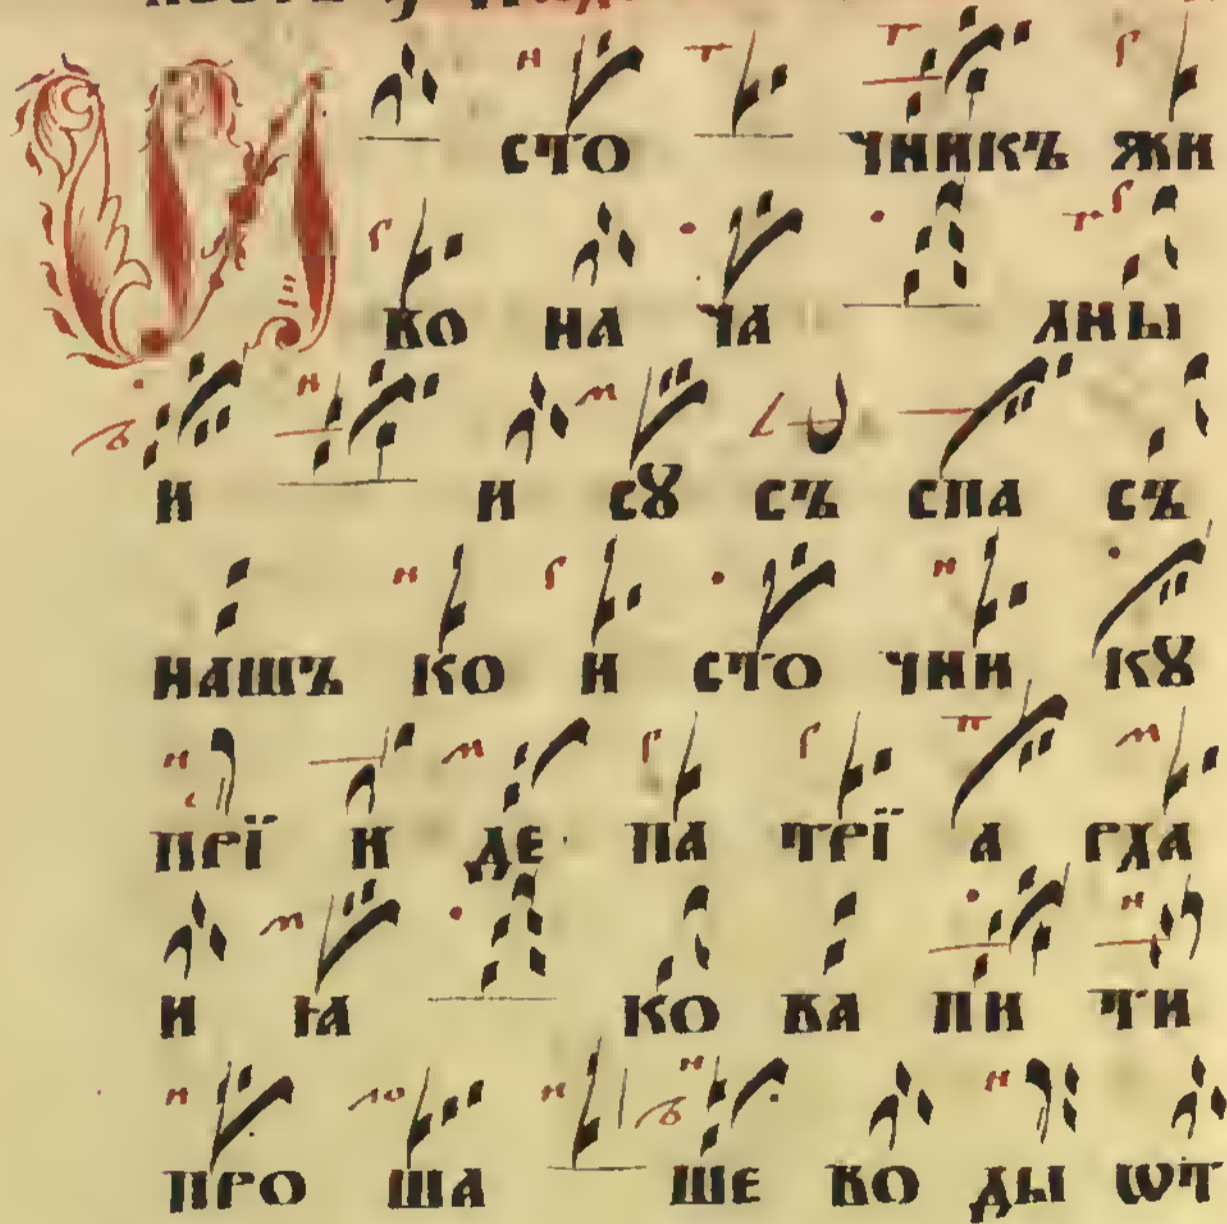 И сто чникъ жи
во на ча лны
и и сꙋ съ спа съ
нашъ ко и сто чни кꙋ
прї и де па трї а рха
и ꙗ ко ва пи ти
про ша ше во ды ѡт